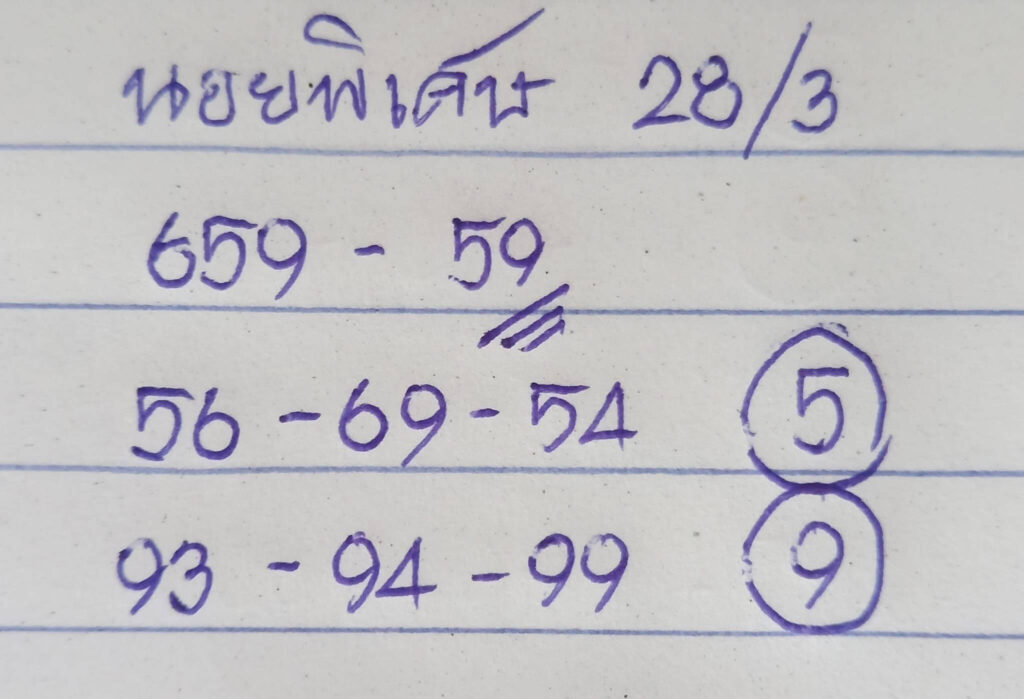 นอยพิเศษ 28/3
659 - 59
56 - 69 - 54 5
93 - 94 - 99 9